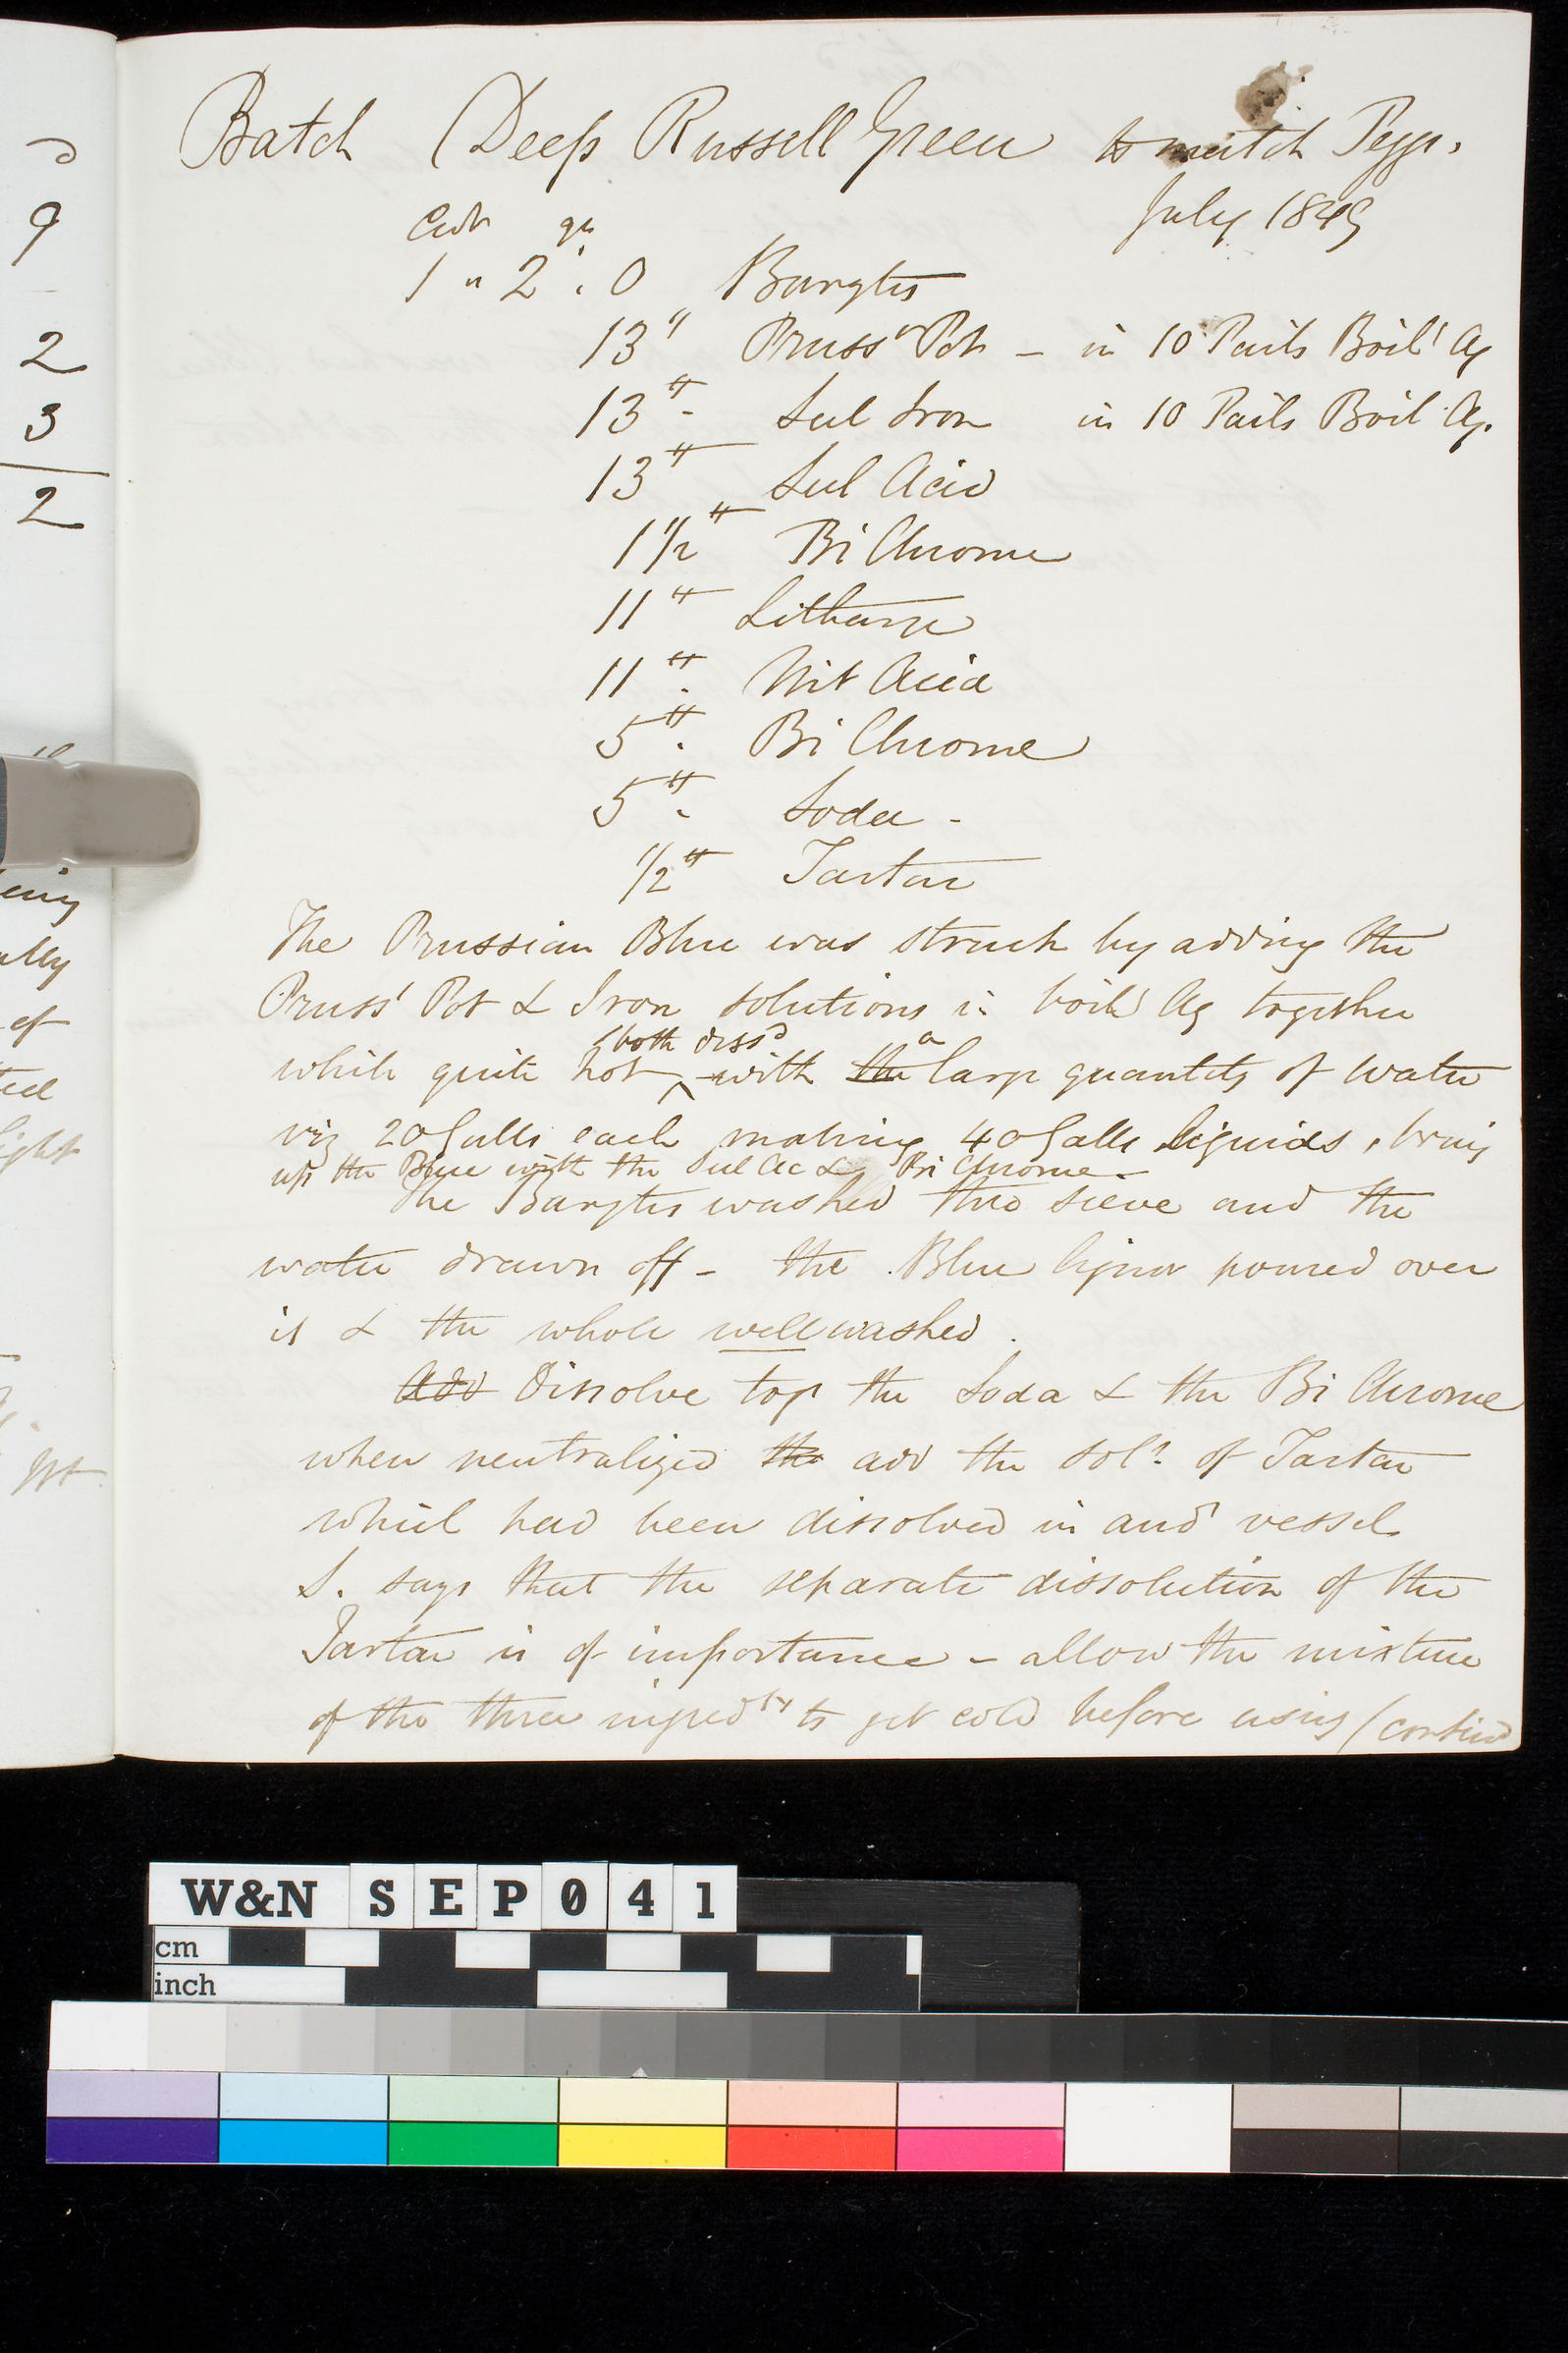 Batch (Deep Russell Green to match Pegg's.
July 1849
Cwt qrs
1 " 2 . 0 Barytes
13 " Pruss' Pot - in 10 Pails Boil' Aq
13 lb - Sul Iron in 10 Pails Boil' Aq.
13 lb Sul Acid
1 1/2 lb Bi Chrome
11 lb Litharge
11 lb. Nit Acid
5 lb. Bi Chrome
5 lb. Soda -
1/2 lb Tartar
The Prussian Blue was struck by adding the
Pruss' Pot & Iron solutions in boil' Aq together
(both diss'd a
while quite hot with the large quantity of water
viz 20 Galls each making 40 Galls liquids, bring
up the Blue with the Sul Ac & Bi Chrome -
The Barytes washed thro sieve and the
water drawn off - the Blue liquor poured over
it & the whole well washed.
Add Dissolve tog' the Soda & the Bi Chrome
when neutralized the add the sol'n of Tartar
which had been dissolved in ano' vessel
S. says that the separate dissolution of the
Tartar is of importance - allow the mixture
of the three ingredts to get cold before using (contin'd
9
2
3
2
ally
of
ight
W&N SEP041
cm
inch